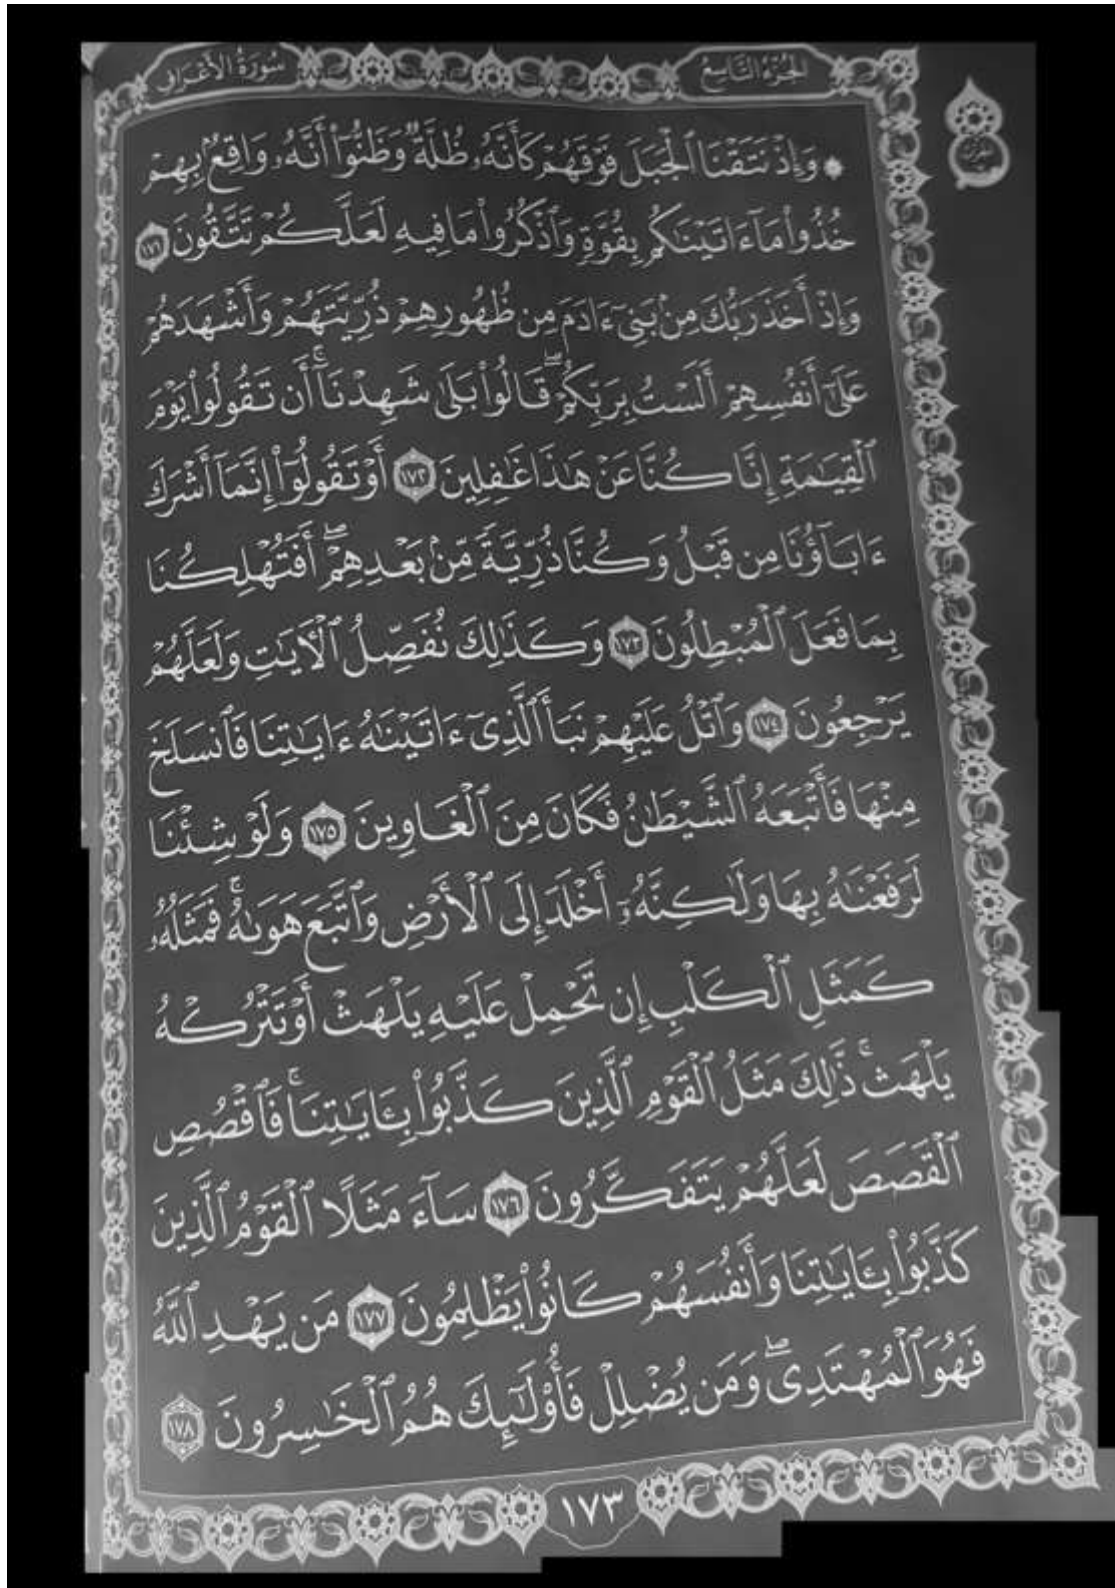 الجزء التاسع
سورة الأعراف
۞ وَإِذْ نَتَقْنَا ٱلْجَبَلَ فَوْقَهُمْ كَأَنَّهُۥ ظُلَّةٌ وَظَنُّوٓا۟ أَنَّهُۥ وَاقِعٌۢ بِهِمْ
خُذُوا۟ مَآ ءَاتَيْنَـٰكُم بِقُوَّةٍ وَٱذْكُرُوا۟ مَا فِيهِ لَعَلَّكُمْ تَتَّقُونَ ١٧١
وَإِذْ أَخَذَ رَبُّكَ مِنۢ بَنِىٓ ءَادَمَ مِن ظُهُورِهِمْ ذُرِّيَّتَهُمْ وَأَشْهَدَهُمْ
عَلَىٰٓ أَنفُسِهِمْ أَلَسْتُ بِرَبِّكُمْ ۖ قَالُوا۟ بَلَىٰ شَهِدْنَآ ۚ أَن تَقُولُوا۟ يَوْمَ
ٱلْقِيَـٰمَةِ إِنَّا كُنَّا عَنْ هَـٰذَا غَـٰفِلِينَ ١٧٢ أَوْ تَقُولُوٓا۟ إِنَّمَآ أَشْرَكَ
ءَابَآؤُنَا مِن قَبْلُ وَكُنَّا ذُرِّيَّةً مِّنۢ بَعْدِهِمْ ۖ أَفَتُهْلِكُنَا
بِمَا فَعَلَ ٱلْمُبْطِلُونَ ١٧٣ وَكَذَٰلِكَ نُفَصِّلُ ٱلْـَٔايَـٰتِ وَلَعَلَّهُمْ
يَرْجِعُونَ ١٧٤ وَٱتْلُ عَلَيْهِمْ نَبَأَ ٱلَّذِىٓ ءَاتَيْنَـٰهُ ءَايَـٰتِنَا فَٱنسَلَخَ
مِنْهَا فَأَتْبَعَهُ ٱلشَّيْطَـٰنُ فَكَانَ مِنَ ٱلْغَاوِينَ ١٧٥ وَلَوْ شِئْنَا
لَرَفَعْنَـٰهُ بِهَا وَلَـٰكِنَّهُۥٓ أَخْلَدَ إِلَى ٱلْأَرْضِ وَٱتَّبَعَ هَوَىٰهُ ۚ فَمَثَلُهُۥ
كَمَثَلِ ٱلْكَلْبِ إِن تَحْمِلْ عَلَيْهِ يَلْهَثْ أَوْ تَتْرُكْهُ
يَلْهَث ۚ ذَّٰلِكَ مَثَلُ ٱلْقَوْمِ ٱلَّذِينَ كَذَّبُوا۟ بِـَٔايَـٰتِنَا ۚ فَٱقْصُصِ
ٱلْقَصَصَ لَعَلَّهُمْ يَتَفَكَّرُونَ ١٧٦ سَآءَ مَثَلًا ٱلْقَوْمُ ٱلَّذِينَ
كَذَّبُوا۟ بِـَٔايَـٰتِنَا وَأَنفُسَهُمْ كَانُوا۟ يَظْلِمُونَ ١٧٧ مَن يَهْدِ ٱللَّهُ
فَهُوَ ٱلْمُهْتَدِى ۖ وَمَن يُضْلِلْ فَأُو۟لَـٰٓئِكَ هُمُ ٱلْخَـٰسِرُونَ ١٧٨
١٧٣